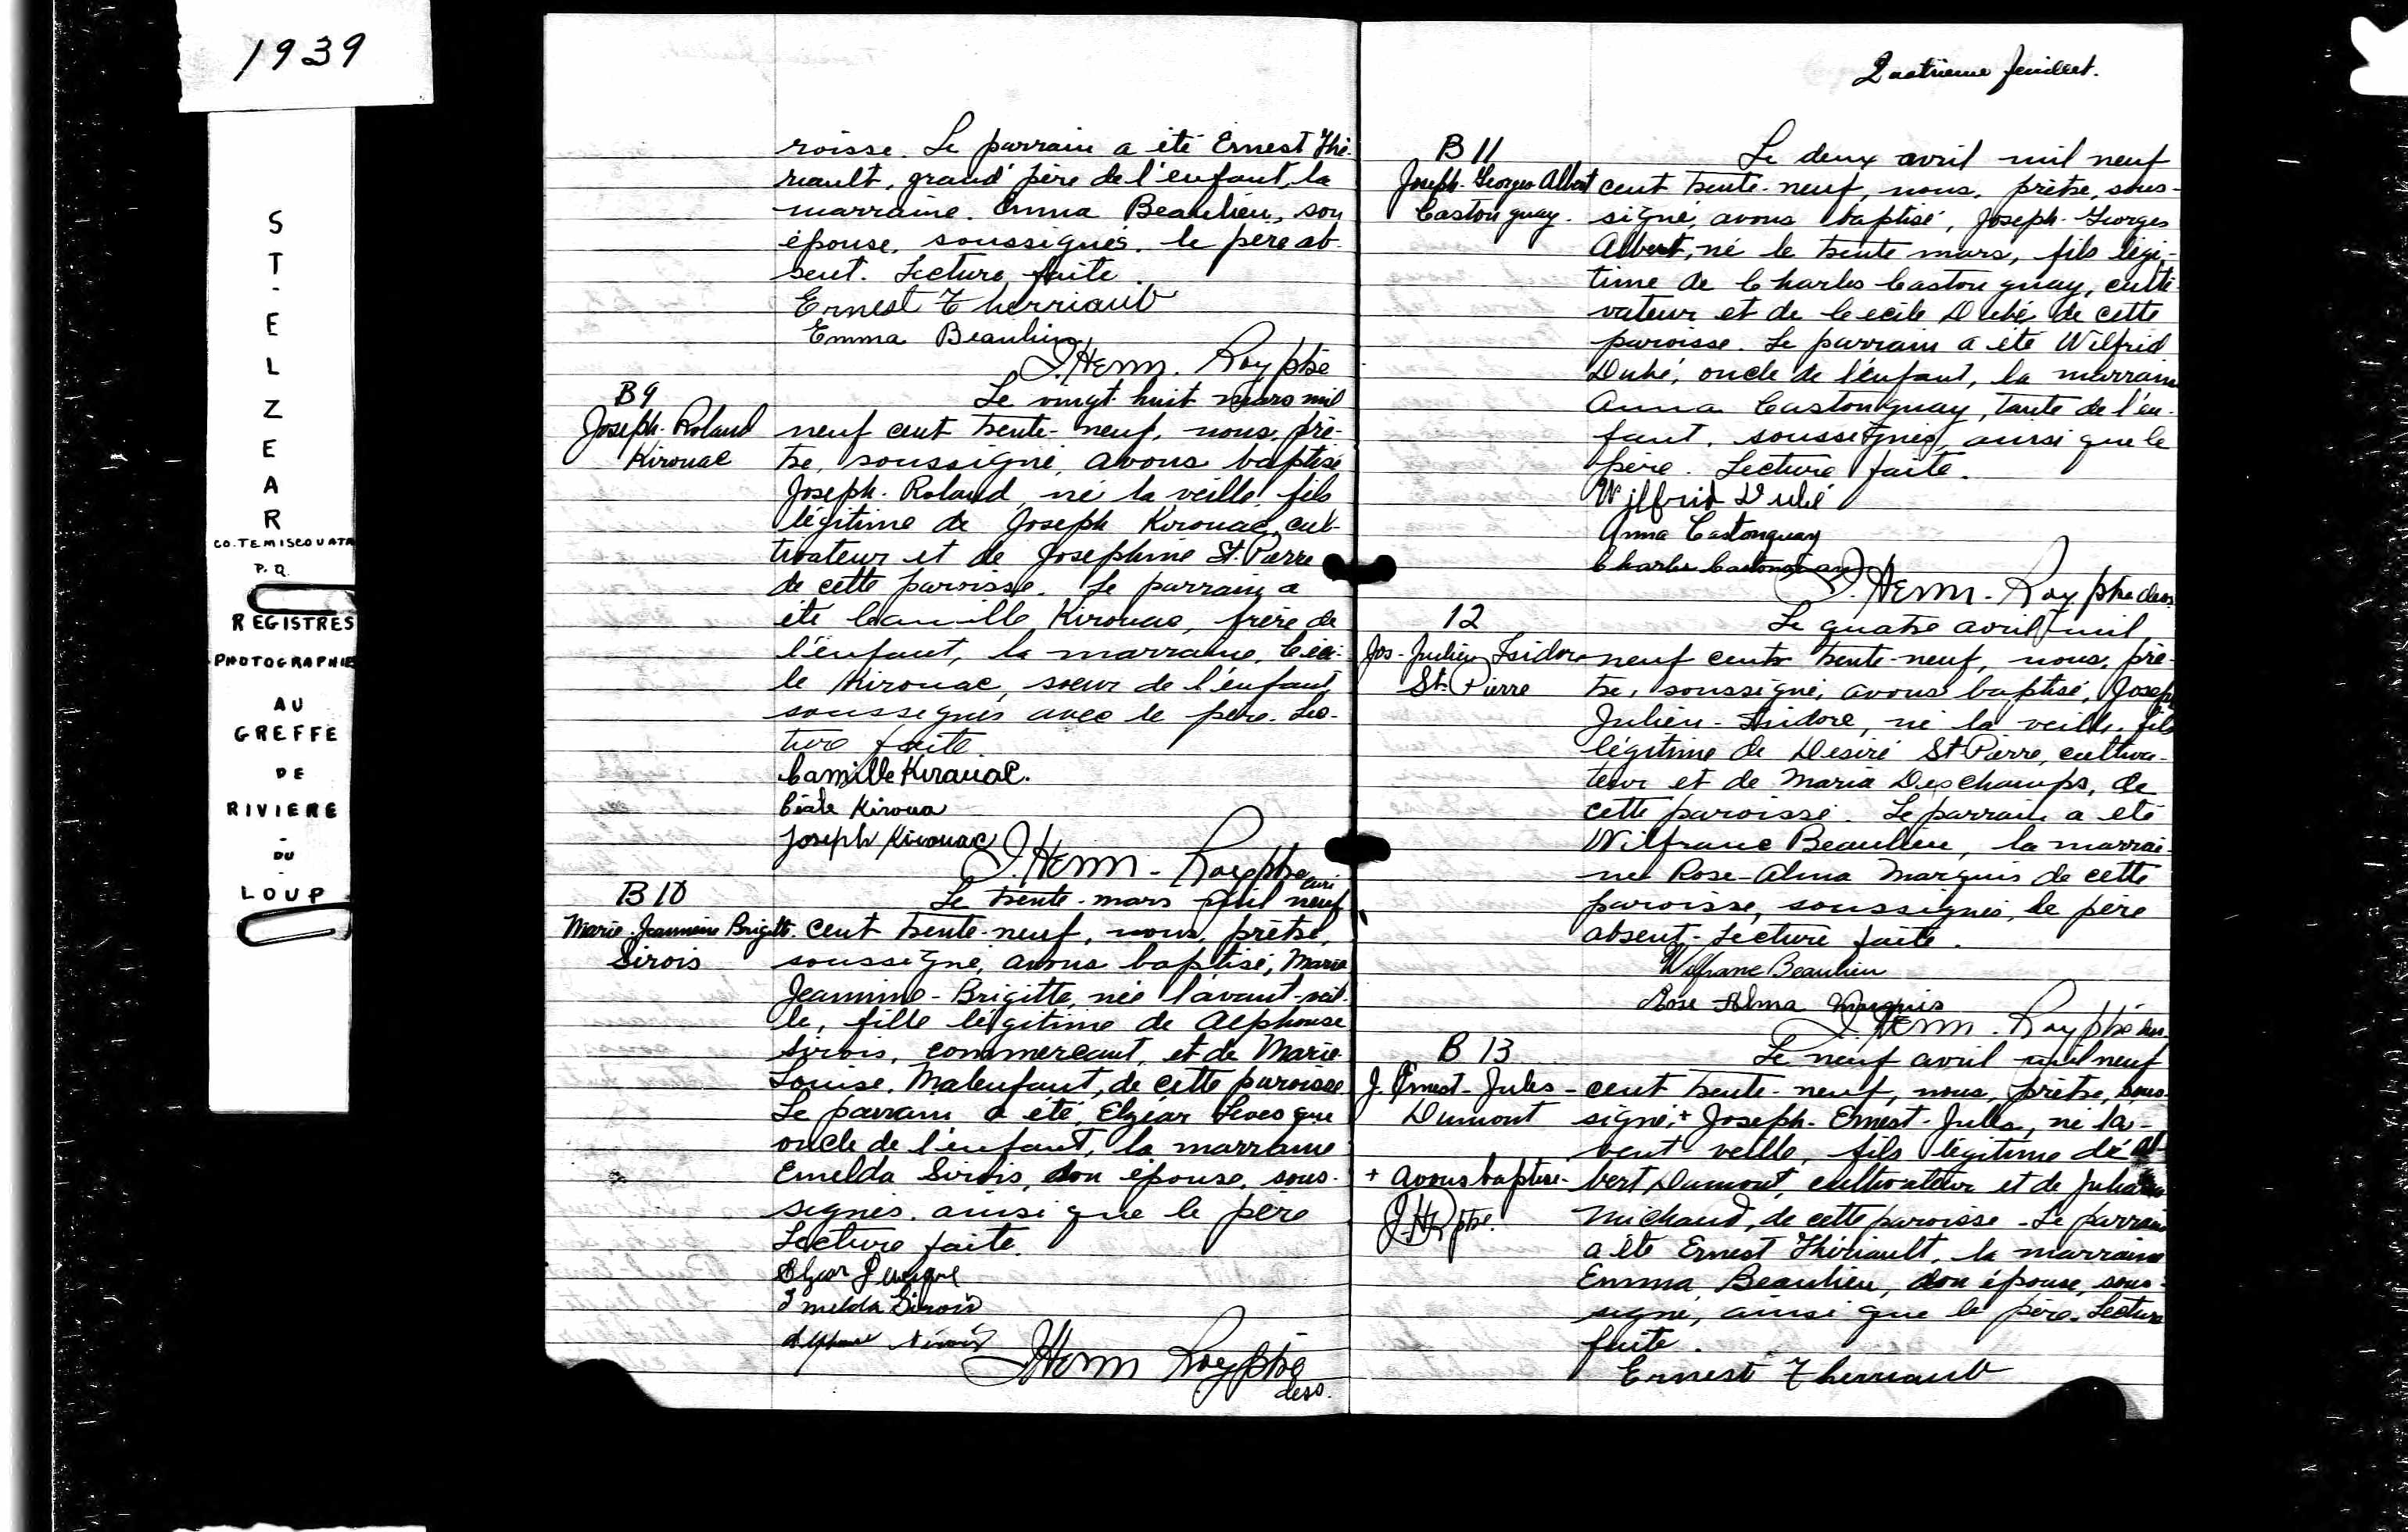 1939
ST-ELZEAR
CO. TEMISCOUATA
P.Q.
REGISTRES
PHOTOGRAPHIE
AU
GREFFE
DE
RIVIERE
-
DU
LOUP
roisse. Le parrain a été Ernest Thé-
riault, grand'père de l'enfant, la
marraine. Emma Beaulieu, son
épouse, soussignés. le père ab-
sent. Lecture faite.
Ernest Therriault
Emma Beaulieu
J. Herm. Roy ptre
B9
Joseph-Roland
Kirouac
Le vingt-huit mars mil
neuf cent trente-neuf, nous, prê-
tre, soussigné, avons baptisé
Joseph-Roland, né la veille fils
légitime de Joseph Kirouac, cul-
tivateur et de Josephine St-Pierre
de cette paroisse. Le parrain a
été Camille Kirouac, frère de
l'enfant, la marraine, Céci-
le Kirouac, soeur de l'enfant
soussignés avec le père. Lec-
ture faite.
Camille Kirouac.
Cécile Kiroua
Joseph Kirouac
J. Herm - Roy ptre
curé
B10
Marie-Jeannine Brigitte
Sirois
Le trente-mars mil neuf
cent trente-neuf, nous, prêtre,
soussigné, avons baptisé, Marie
Jeannine-Brigitte, née l'avant-veil-
le, fille légitime de Alphonse
Sirois, commercant, et de Marie
Louise Malenfant, de cette paroisse
Le parrain a été, Elzéar Levesque
oncle de l'enfant, la marraine
Emelda Sirois, son épouse, sous-
signés. ainsi que le père
Lecture faite.
Elzear Levesque
Imelda Sirois
Alphonse Sirois
J Herm Roy ptre
dess.
Quatrième feuillet.
B11
Joseph-Georges Albert
Castonguay.
Le deux avril mil neuf
cent trente-neuf, nous, prêtre, sous-
signé, avons baptisé, Joseph-Georges
Albert, né le trente mars, fils légi-
time de Charles Castonguay, culti-
vateur et de Cécile Dubé de cette
paroisse. Le parrain a été Wilfrid
Dubé, oncle de l'enfant, la marraine
Anna Castonguay, tante de l'en-
fant. soussignés, ainsi que le
père. Lecture faite.
Wilfrid Dubé
Anna Castonguay
Charles Castonguay
J. Herm-Roy ptre dess.
12
Jos-Julien Isidore
St-Pierre
Le quatre avril mil
neuf cent trente-neuf, nous, prê-
tre, soussigné, avons baptisé, Joseph
Julien-Isidore, né la veille, fils
légitime de Désiré St Pierre, cultiva-
teur et de Maria Deschamps, de
cette paroisse. Le parrain a été
Wilfranc Beaulieu, la marrai-
ne Rose-Alma Marquis de cette
paroisse, soussignés, le père
absent-Lecture faite.
Wilfranc Beaulieu
Rose Alma Marquis
J. Herm. Roy ptre dess.
B13
J. Ernest-Jules-
Dumont
+ avons baptisé-
J.H.R. ptre.
Le neuf avril mil neuf
cent trente-neuf, nous, prêtre, sous-
signé, + Joseph-Ernest-Jules, né l'a-
vant-veille, fils légitime de Al-
bert Dumont, cultivateur et de
Michaud, de cette paroisse-Le parrain
a été Ernest Thériault, la marraine
Emma, Beaulieu, son épouse, sous-
signé, ainsi que le père. Lecture
faite.
Ernest Therriault